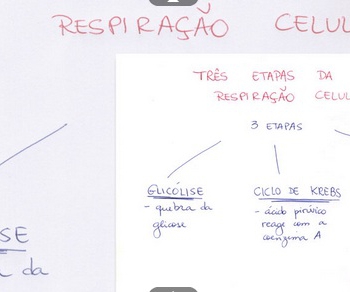 RESPIRAÇÃO CELUL
TRÊS ETAPAS DA
RESPIRAÇÃO CELUL
3 ETAPAS
GLICÓLISE
- quebra da
glicose
CICLO DE KREBS
- ácido pirúvico
reage com a
coenzima A
SE
da